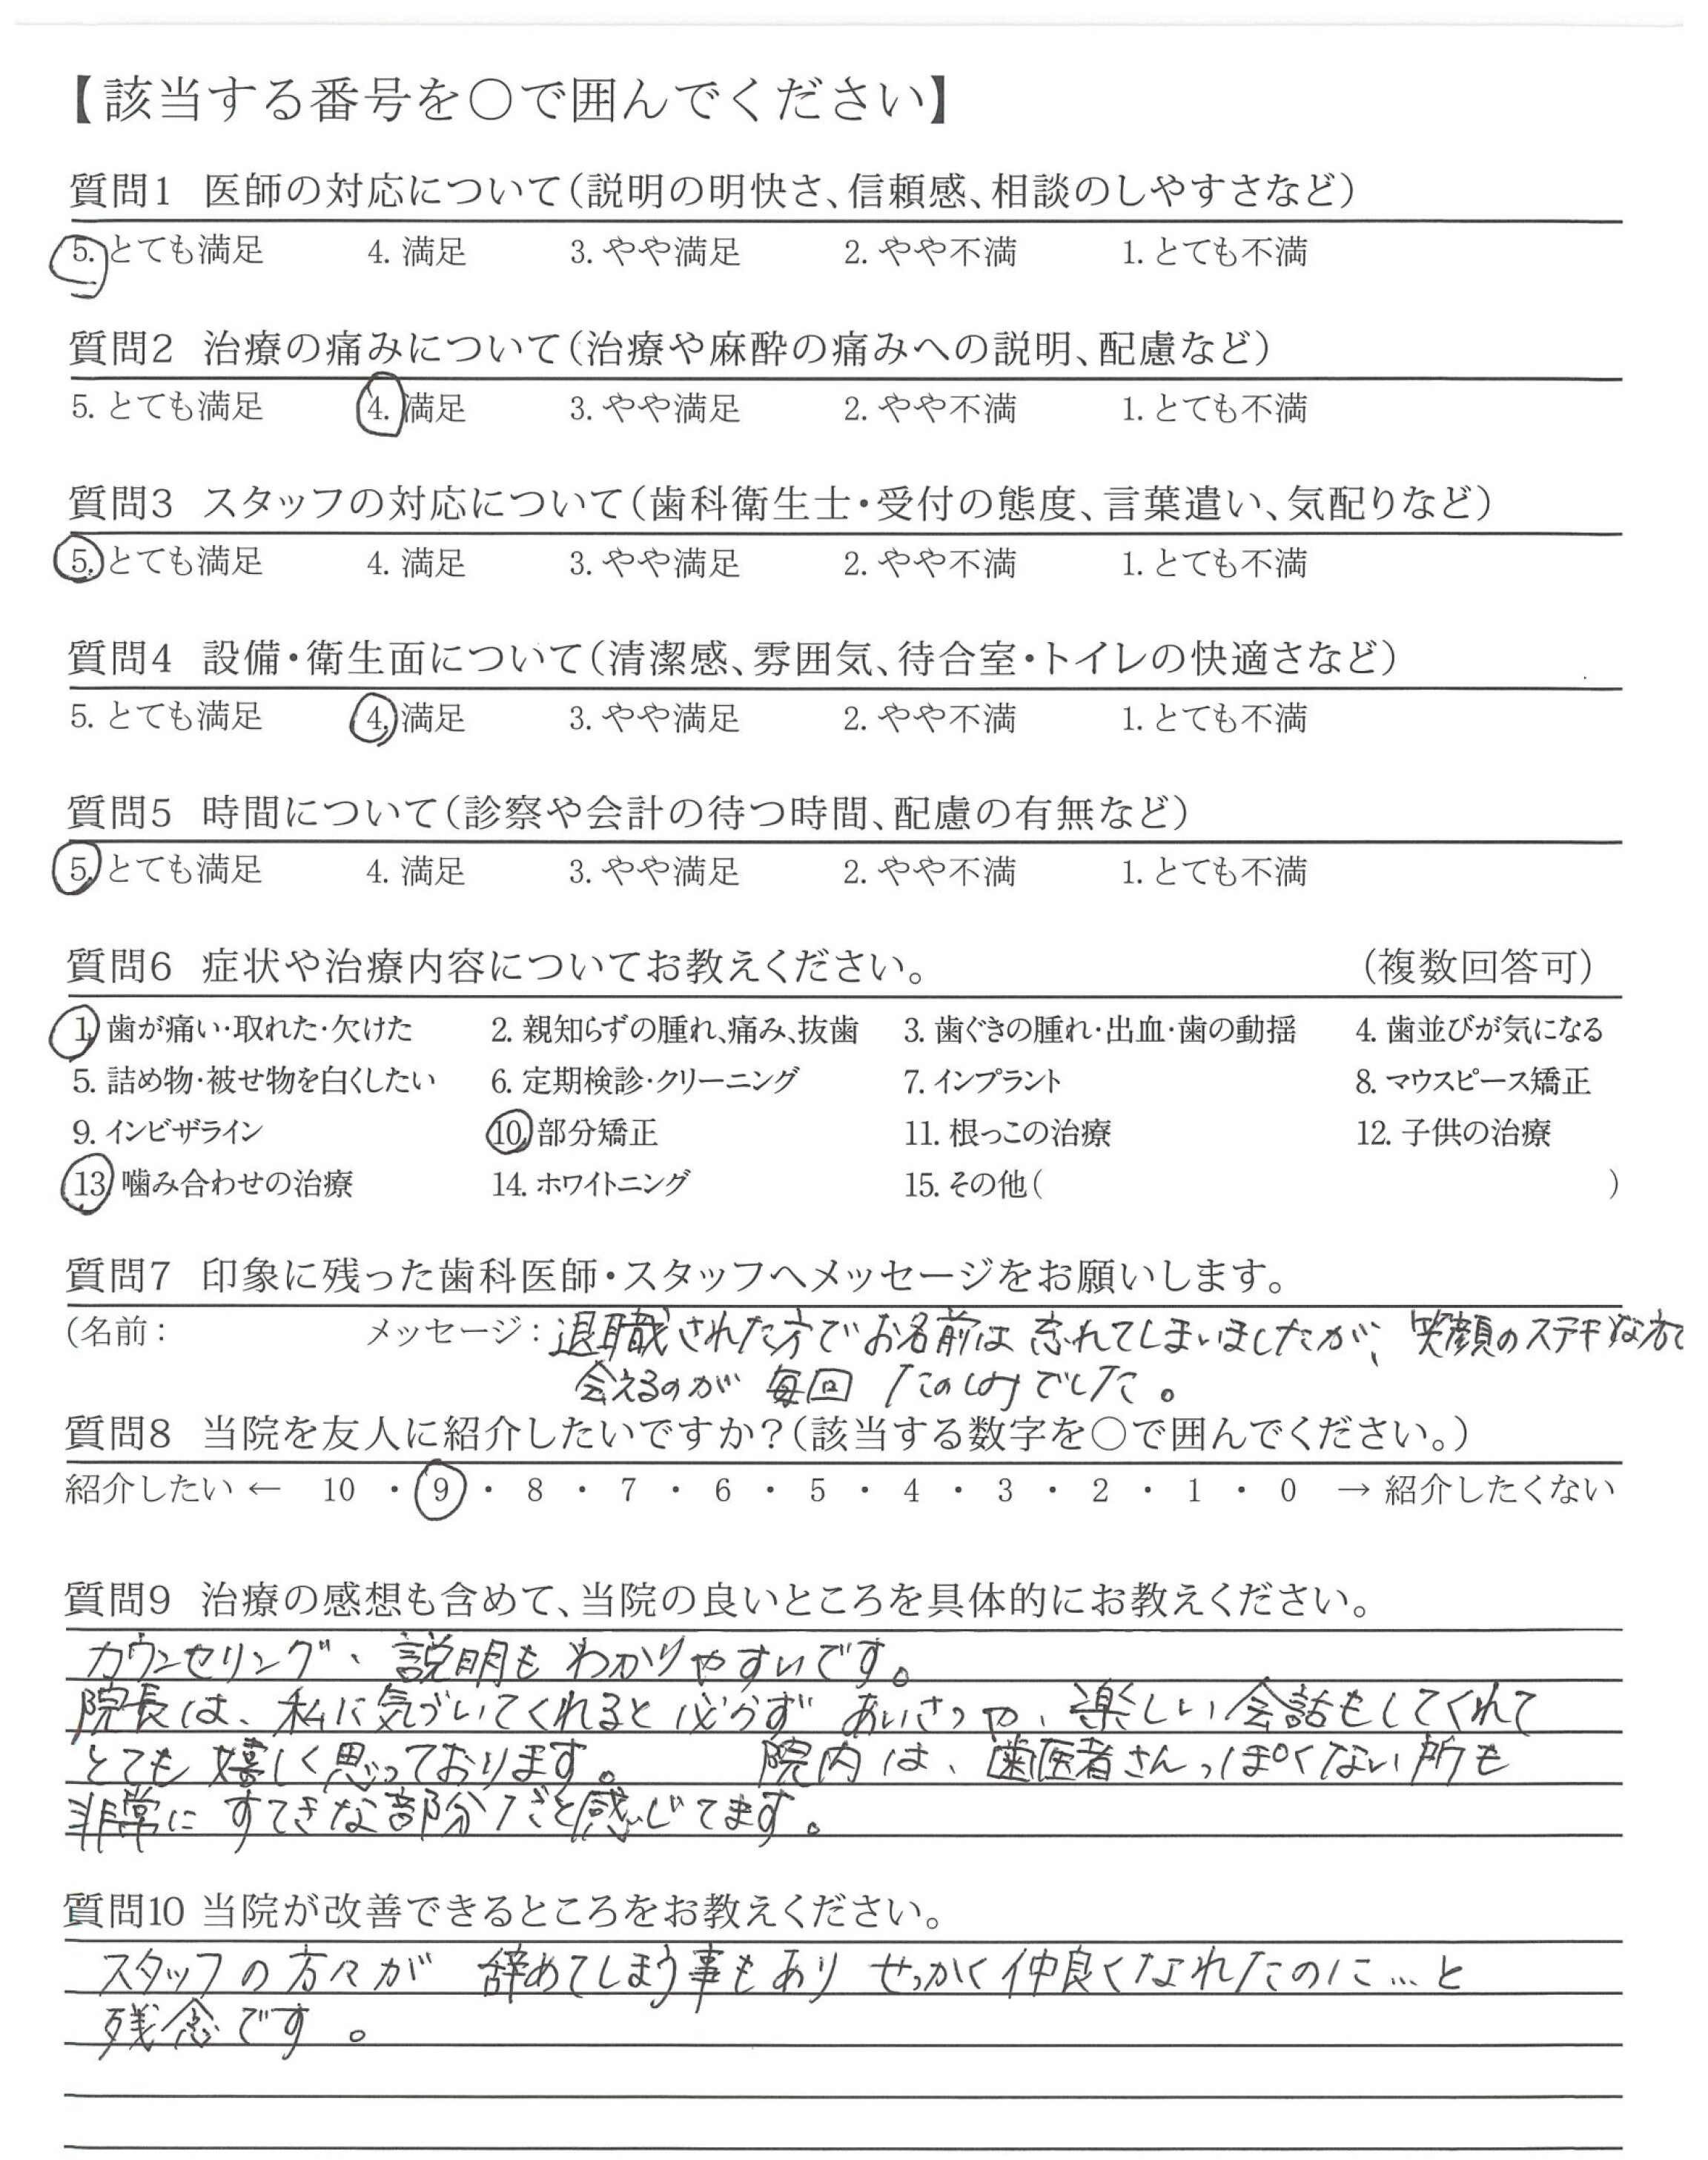 【該当する番号を〇で囲んでください】
質問1 医師の対応について（説明の明快さ、信頼感、相談のしやすさなど）
5. とても満足 4. 満足 3. やや満足 2. やや不満 1. とても不満
質問2 治療の痛みについて（治療や麻酔の痛みへの説明、配慮など）
5. とても満足 4. 満足 3. やや満足 2. やや不満 1. とても不満
質問3 スタッフの対応について（歯科衛生士・受付の態度、言葉遣い、気配りなど）
5. とても満足 4. 満足 3. やや満足 2. やや不満 1. とても不満
質問4 設備・衛生面について（清潔感、雰囲気、待合室・トイレの快適さなど）
5. とても満足 4. 満足 3. やや満足 2. やや不満 1. とても不満
質問5 時間について（診察や会計の待つ時間、配慮の有無など）
5. とても満足 4. 満足 3. やや満足 2. やや不満 1. とても不満
質問6 症状や治療内容についてお教えください。 （複数回答可）
1. 歯が痛い・取れた・欠けた 2. 親知らずの腫れ、痛み、抜歯 3. 歯ぐきの腫れ・出血・歯の動揺 4. 歯並びが気になる
5. 詰め物・被せ物を白くしたい 6. 定期検診・クリーニング 7. インプラント 8. マウスピース矯正
9. インビザライン 10. 部分矯正 11. 根っこの治療 12. 子供の治療
13. 噛み合わせの治療 14. ホワイトニング 15. その他（ ）
質問7 印象に残った歯科医師・スタッフへメッセージをお願いします。
（名前： メッセージ：退職された方でお名前は忘れてしまいましたが、笑顔のステキな方で
会えるのが 毎回 たのしみでした。
質問8 当院を友人に紹介したいですか？（該当する数字を〇で囲んでください。）
紹介したい ← 10 ・ 9 ・ 8 ・ 7 ・ 6 ・ 5 ・ 4 ・ 3 ・ 2 ・ 1 ・ 0 → 紹介したくない
質問9 治療の感想も含めて、当院の良いところを具体的にお教えください。
カウンセリング、説明もわかりやすいです。
院長は、私に気づいてくれると必らず あいさつや、楽しい会話もしてくれて
とても嬉しく思っております。 院内は、歯医者さんっぽくない所も
非常に すてきな部分だと感じてます。
質問10 当院が改善できるところをお教えください。
スタッフの方々が 辞めてしまう事もあり せっかく仲良くなれたのに…と
残念です。